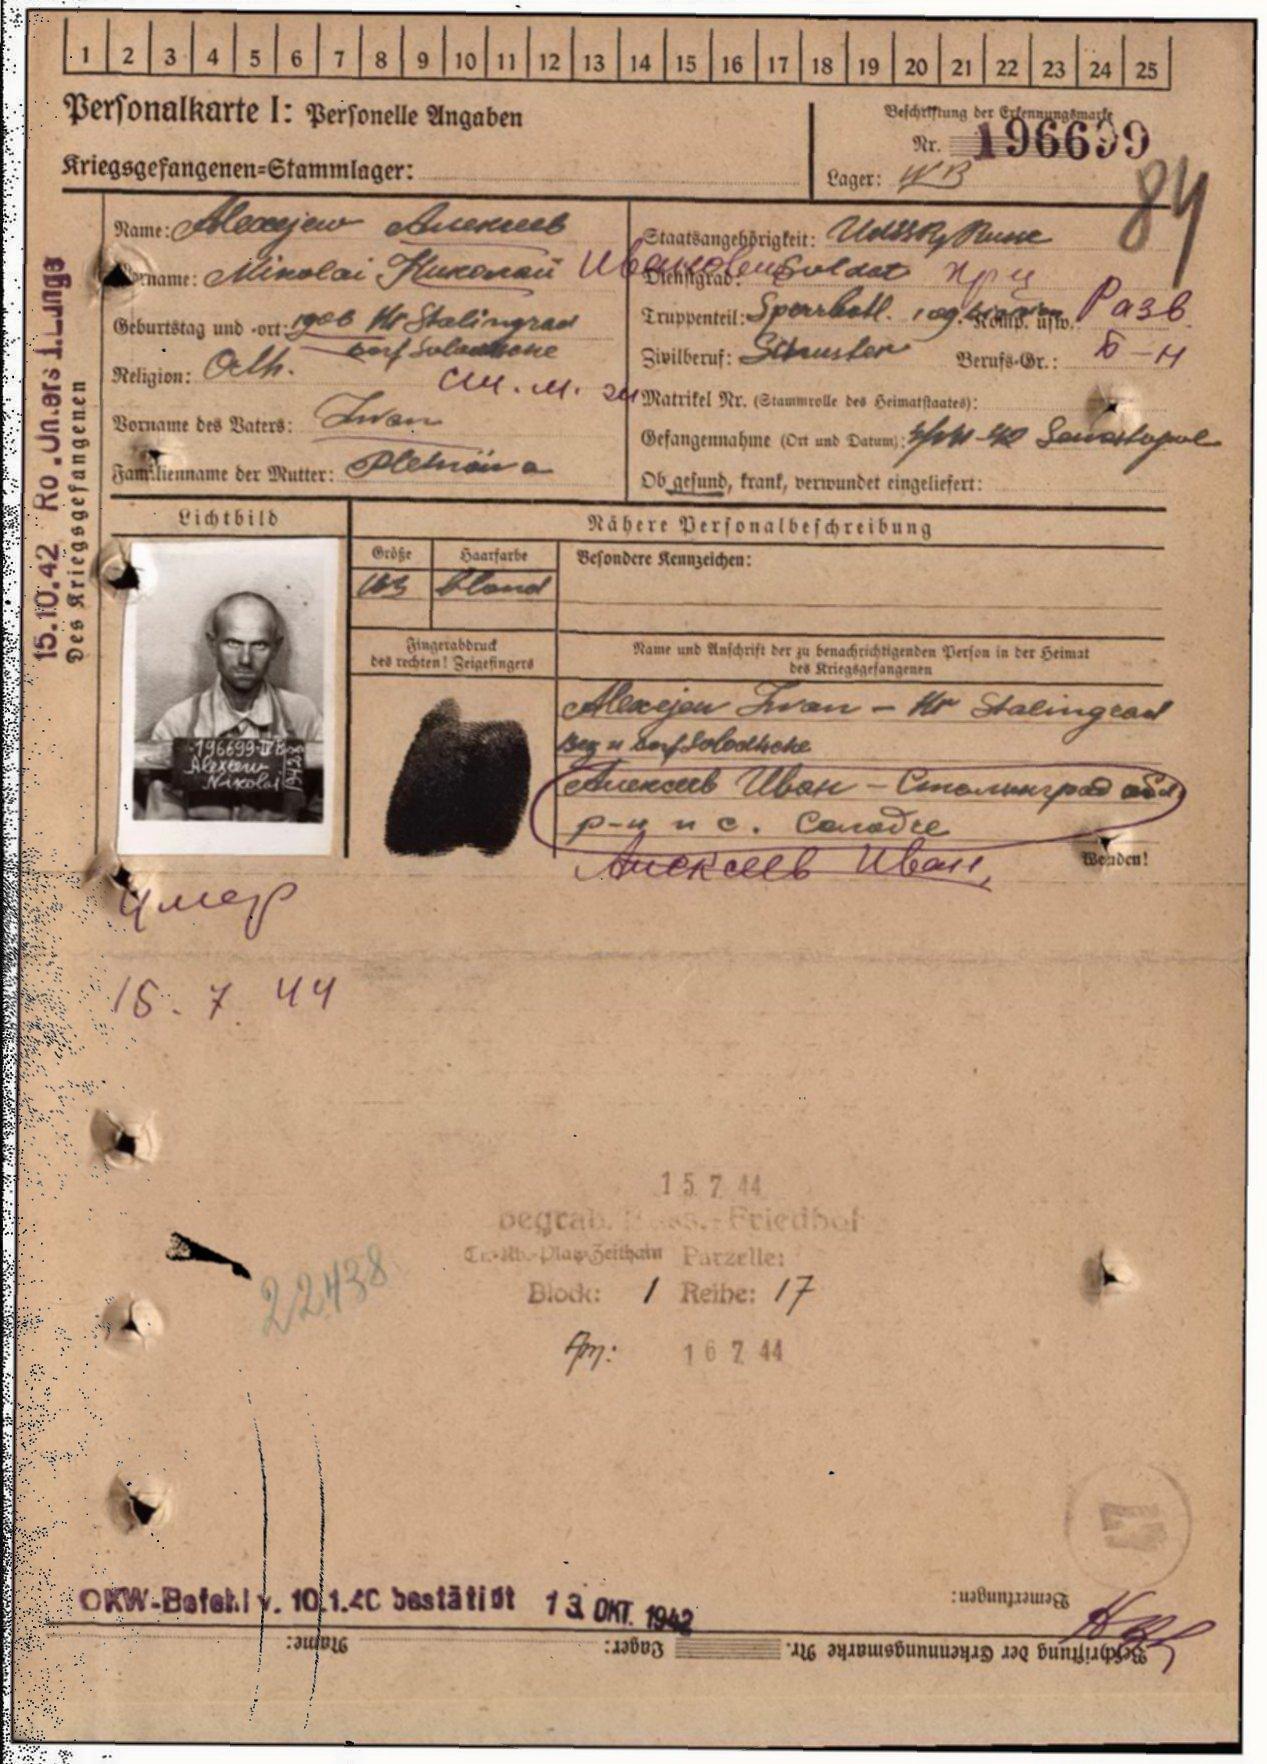 1 2 3 4 5 6 7 8 9 10 11 12 13 14 15 16 17 18 19 20 21 22 23 24 25
Personalkarte I: Personelle Angaben
Kriegsgefangenen=Stammlager:
Beschriftung der Erkennungsmarke
Nr. 196699
Lager: IV B
84
Name: Alexejew Алексеев
Vorname: Nikolai Николай Иванович
Geburtstag und -ort: 1906 Kr Stalingrad
Dorf Solodtsche
Religion: Orth.
Vorname des Vaters: Iwan
Familienname der Mutter:
Staatsangehörigkeit: UdSSR, Russe
Dienstgrad: Soldat
Truppenteil: Komp. usw. Разв
Zivilberuf: Schuster Berufs-Gr.: Б-н
Matrikel Nr. (Stammrolle des Heimatstaates):
Gefangennahme (Ort und Datum):
Ob gesund, krank, verwundet eingeliefert:
15.10.42
Des Kriegsgefangenen
Lichtbild
Nähere Personalbeschreibung
Größe
Haarfarbe
Besondere Kennzeichen:
163
blond
Fingerabdruck
des rechten! Zeigefingers
Name und Anschrift der zu benachrichtigenden Person in der Heimat
des Kriegsgefangenen
Alexejew Iwan - Kr Stalingrad
Bez u Dorf Solodtsche
Алексеев Иван - Сталинград обл
р-н и с. Солодче
Алексеев Иван,
Wenden!
196699 IV B
Alexeew
Nikolai
умер
15. 7 44
15 7 44
begrab. Russ.-Friedhof
Zeithain Parzelle:
Block: 1 Reihe: 17
16 7 44
22438
OKW-Befehl v. 10.1.40 bestätigt 13. OKT. 1942
Bemerkungen:
Beschriftung der Erkennungsmarke Nr. Lager: Name: